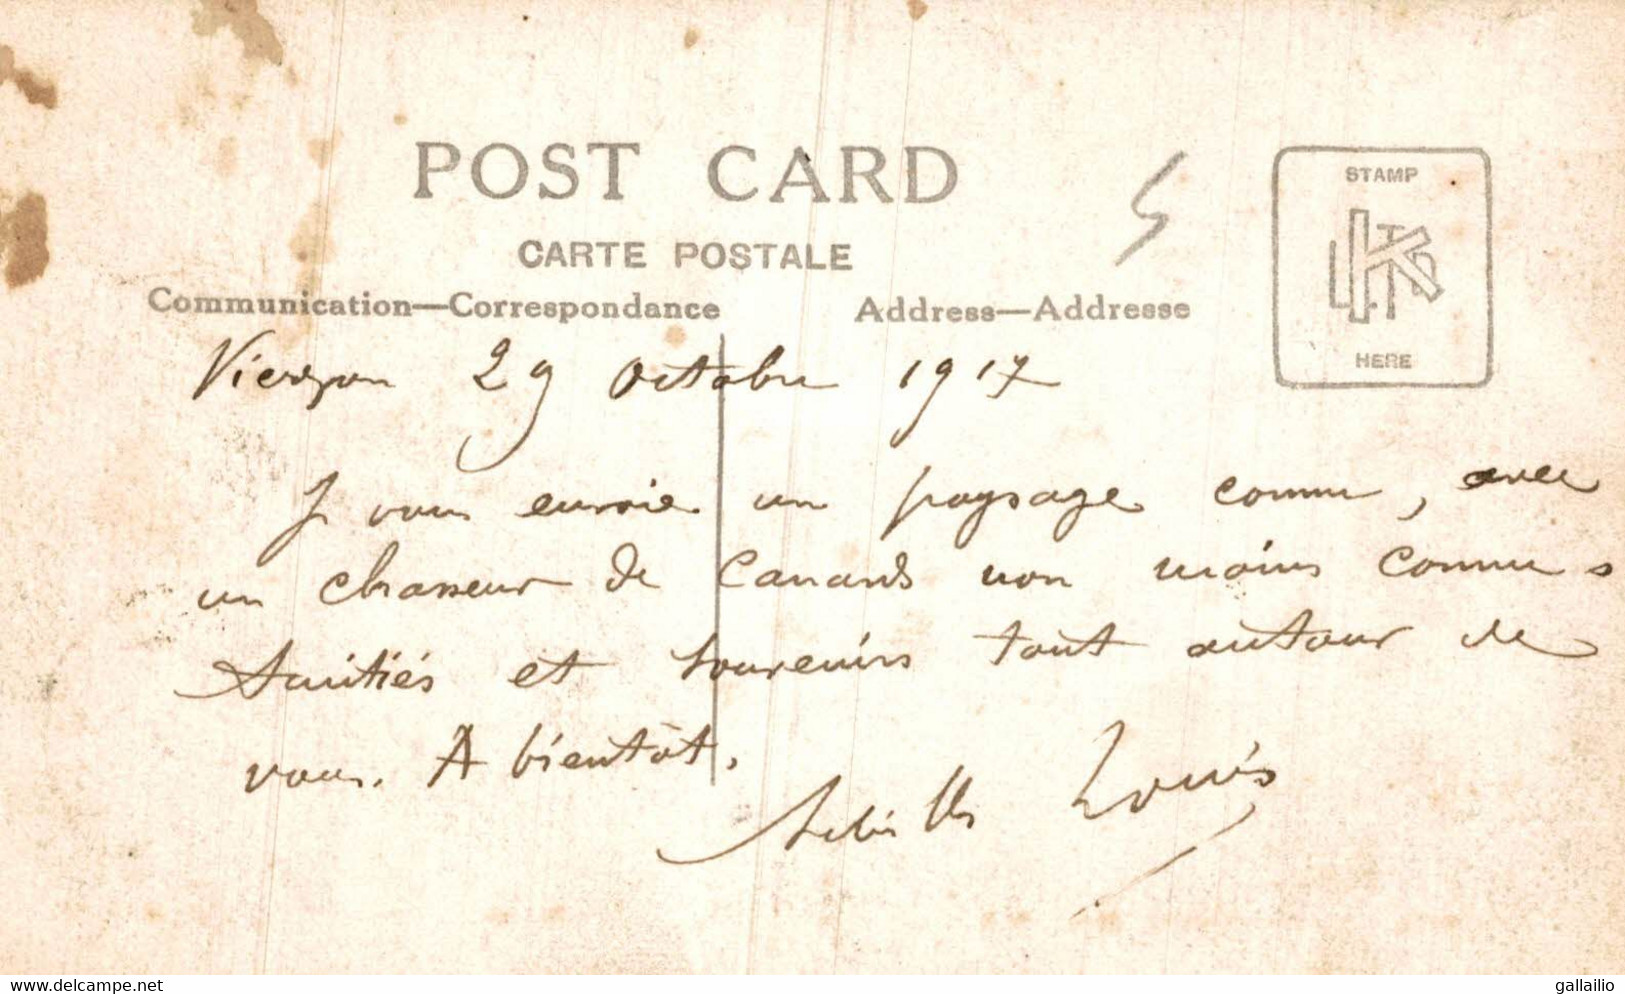 POST CARD
CARTE POSTALE
Communication—Correspondance
Address—Addresse
STAMP
HERE
5
Vierzon 29 Octobre 1917
Je vous envoie un paysage connu, avec
un chasseur de Canards non moins connu.
Amitiés et souvenirs tout autour de
vous. A bientôt.
Achille Louis
www.delcampe.net
gallailio